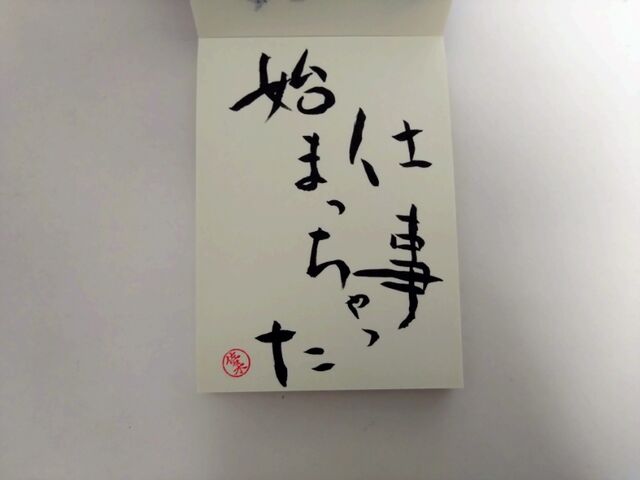 仕事
始まっちゃった